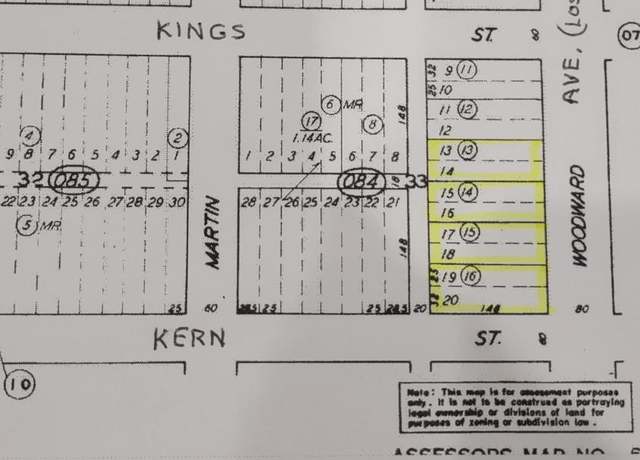 KINGS ST. 8
AVE, (LOS
07
32 9 11
25 10
11 12
12
13 13
14
15 14
16
17 15
18
25 19 16
32 20 148
6 MR
17
1.14 AC.
8
148
4
2
9 8 7 6 5 4 3 2 1
1 2 3 4 5 6 7 8
32 085
084 18 33
22 23 24 25 26 27 28 29 30
28 27 26 25 24 23 22 21
5 MR.
MARTIN
WOODWARD
148
25 60 28.5 25 25 28.5 20 80
KERN ST. 8
10
Note: This map is for assessment purposes
only. It is not to be construed as portraying
legal ownership or divisions of land for
purposes of zoning or subdivision law.
ASSESSORS MAP NO. 5